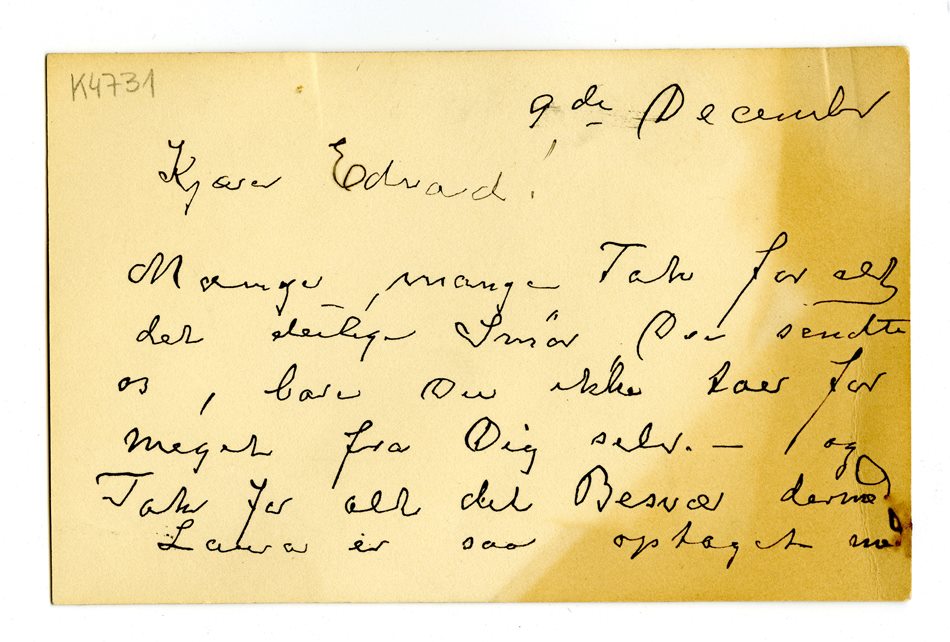 K4731
9de December
Kjære Edvard!
Mange, mange Tak for alt
det deilige Smör Du sendte
os, bare Du ikke taer for
meget fra Dig selv. — og
Tak for alt det Besvær dermed
Laura er saa optaget med